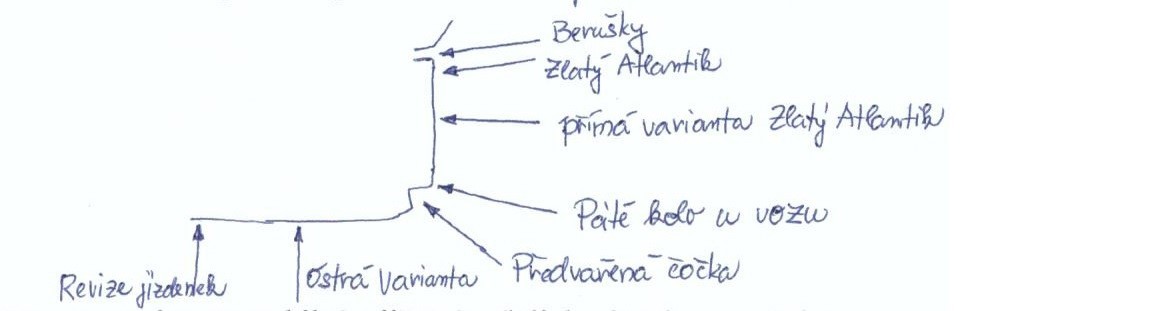 Berušky
Zlatý Atlantik
přímá varianta Zlatý Atlantik
Páté kolo u vozu
Předvařená čočka
Ostrá varianta
Revize jízdenek